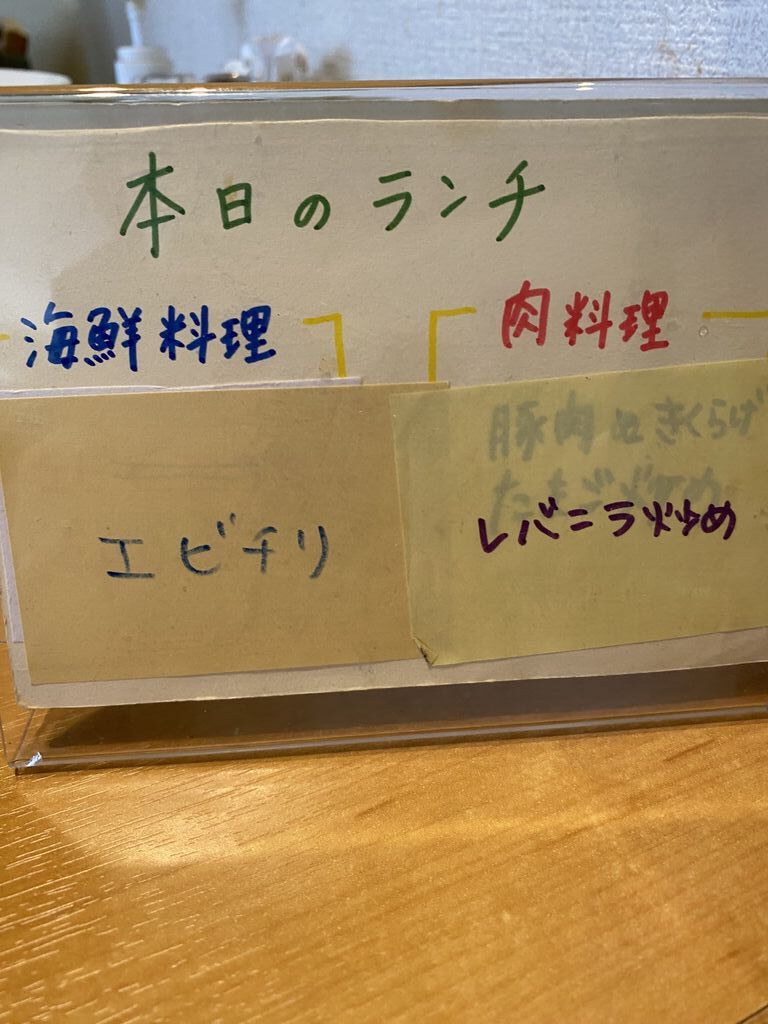 本日のランチ
海鮮料理
肉料理
エビチリ
豚肉ときくらげ
レバニラ炒め